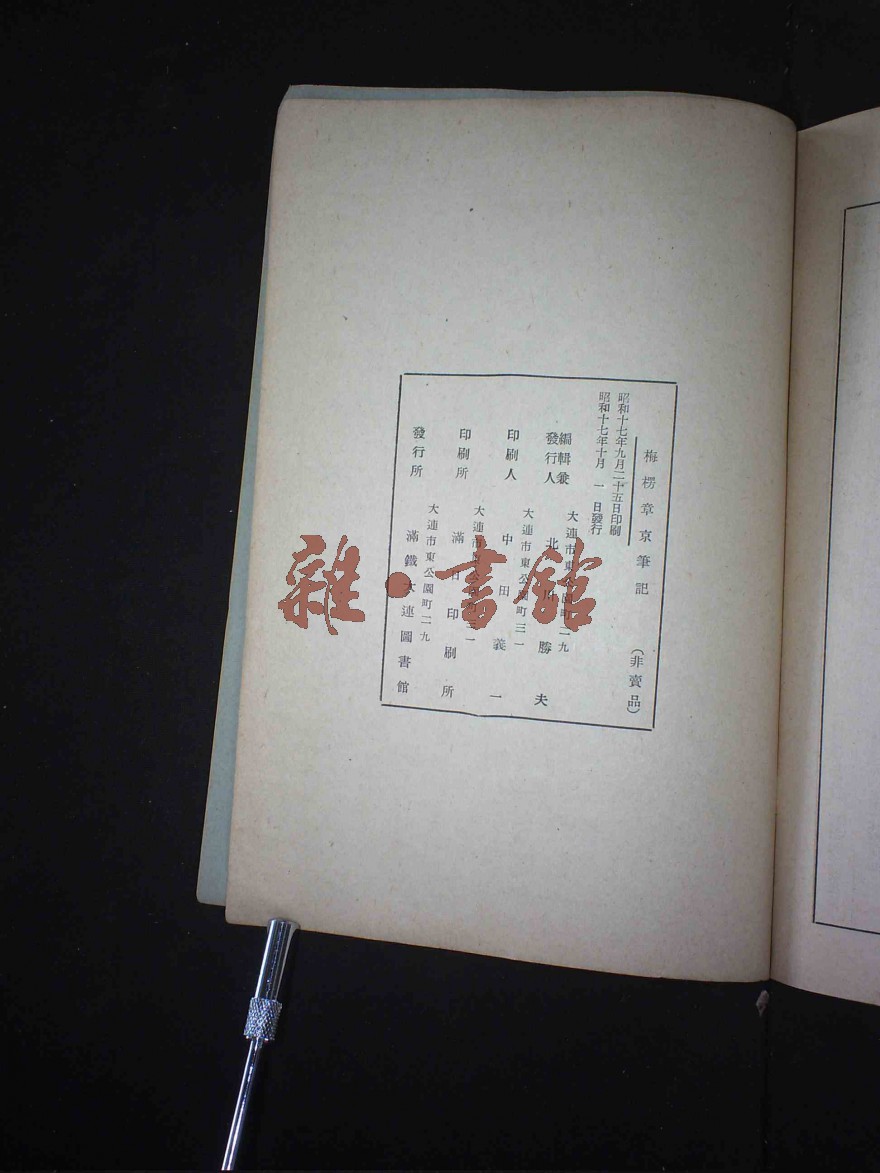 梅楞章京筆記
(非賣品)
昭和十七年九月二十五日印刷
昭和十七年十月一日發行
編輯兼
發行人
大連市東公園町二九
北川勝夫
印刷人
大連市東公園町三一
中田義一
印刷所
大連市東公園町三一
滿日印刷所
發行所
大連市東公園町二九
滿鐵大連圖書館
雜·書館